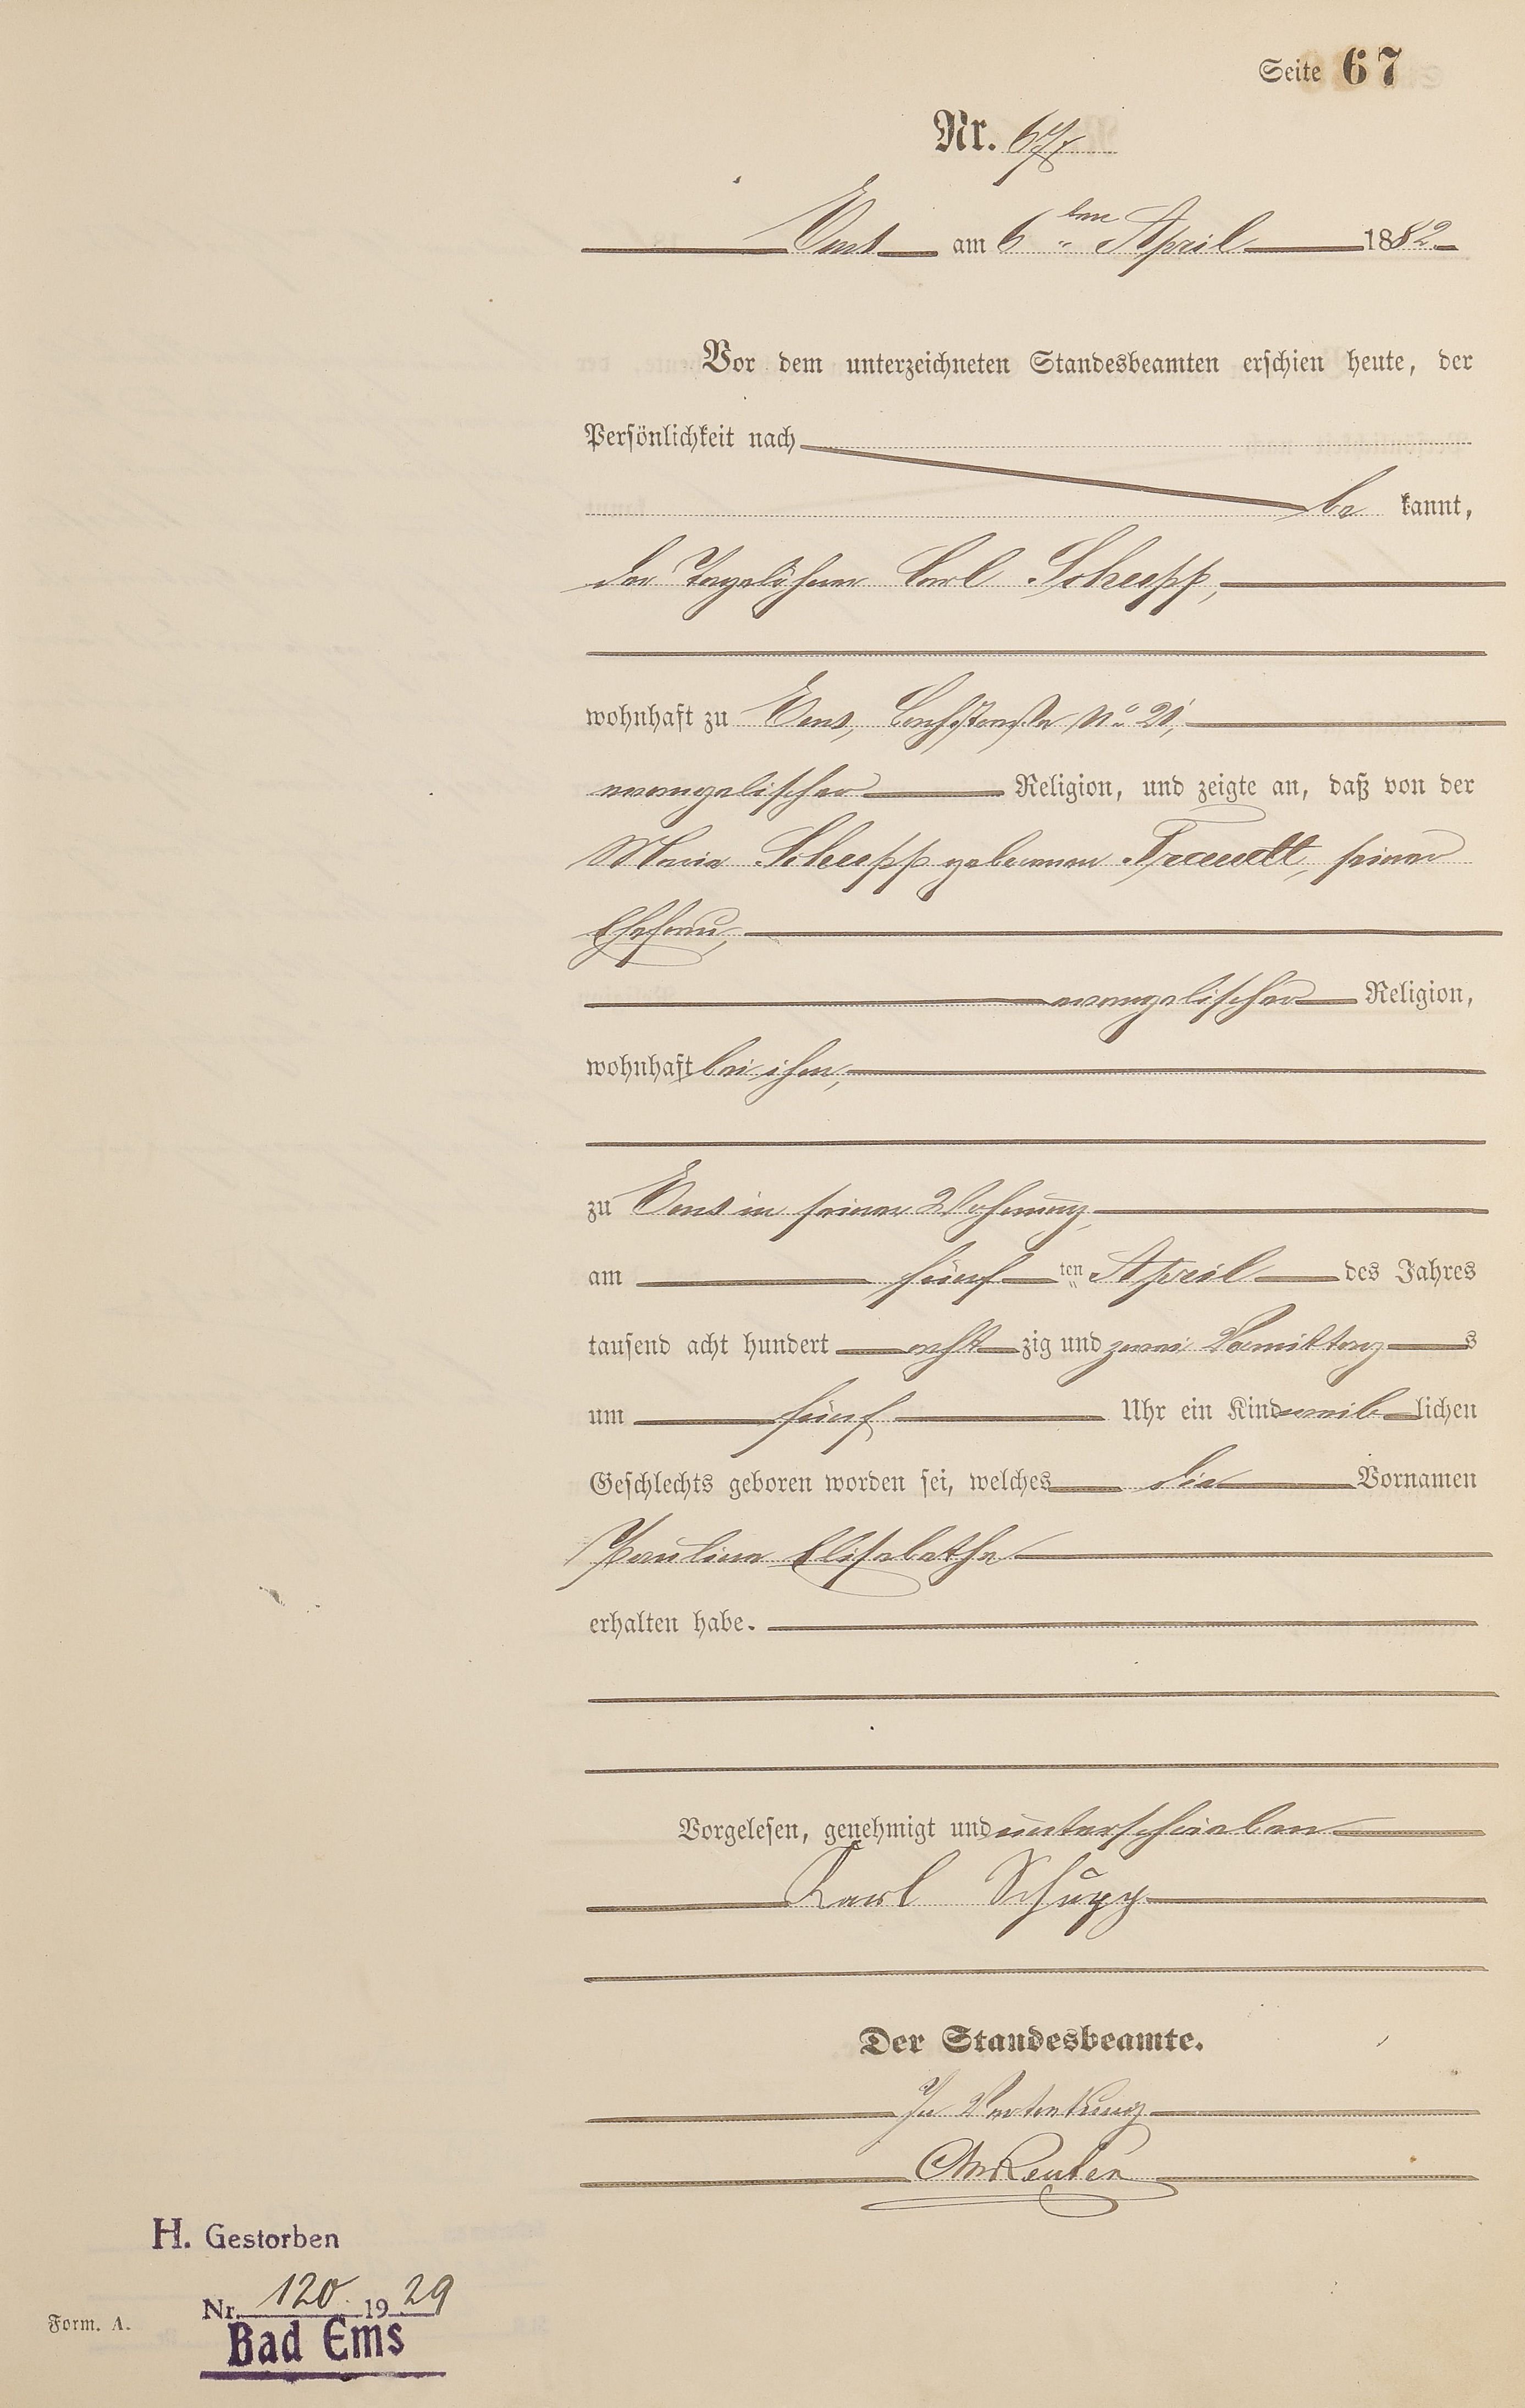 Seite 67
Nr. 67.
Ems am 6ten April 1882
Vor dem unterzeichneten Standesbeamten erschien heute, der
Persönlichkeit nach
be kannt,
der Tagelöhner Carl Schupp,
wohnhaft zu Ems, No 21,
evangelischer Religion, und zeigte an, daß von der
Maria Schupp geborenen seiner
Ehefrau,
evangelischer Religion,
wohnhaft bei ihm,
zu Ems in seiner Wohnung
am fünf ten April des Jahres
tausend acht hundert acht zig und zwei Vormittag s
um fünf Uhr ein Kind weib lichen
Geschlechts geboren worden sei, welches die Vornamen
Pauline Elisabethe
erhalten habe.
Vorgelesen, genehmigt und unterschrieben
Karl Schupp
Der Standesbeamte.
In Vertretung
H. Gestorben
Nr. 120. 1929
Form. A.
Bad Ems